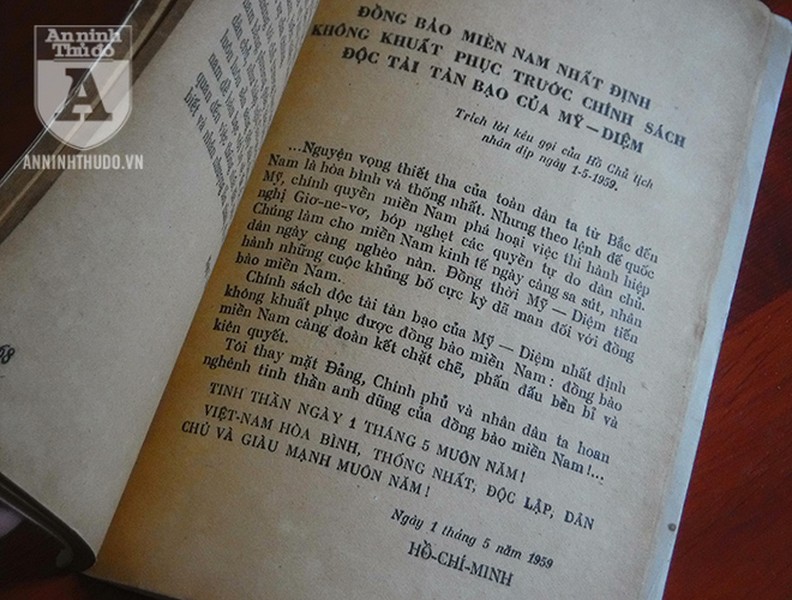 An ninh
Thủ đô
A
ANNINHTHUDO.VN
68
ĐỒNG BÀO MIỀN NAM NHẤT ĐỊNH
KHÔNG KHUẤT PHỤC TRƯỚC CHÍNH SÁCH
ĐỘC TÀI TÀN BẠO CỦA MỸ — DIỆM
Trích lời kêu gọi của Hồ Chủ tịch
nhân dịp ngày 1-5-1959.
...Nguyện vọng thiết tha của toàn dân ta từ Bắc đến
Nam là hòa bình và thống nhất. Nhưng theo lệnh đế quốc
Mỹ, chính quyền miền Nam phá hoại việc thi hành hiệp
nghị Giơ-ne-vơ, bóp nghẹt các quyền tự do dân chủ.
Chúng làm cho miền Nam kinh tế ngày càng sa sút, nhân
dân ngày càng nghèo nàn. Đồng thời Mỹ — Diệm tiến
hành những cuộc khủng bố cực kỳ dã man đối với đồng
bào miền Nam.
Chính sách độc tài tàn bạo của Mỹ — Diệm nhất định
không khuất phục được đồng bào miền Nam : đồng bào
miền Nam càng đoàn kết chặt chẽ, phấn đấu bền bỉ và
kiên quyết.
Tôi thay mặt Đảng, Chính phủ và nhân dân ta hoan
nghênh tinh thần anh dũng của đồng bào miền Nam !...
TINH THẦN NGÀY 1 THÁNG 5 MUÔN NĂM !
VIỆT-NAM HÒA BÌNH, THỐNG NHẤT, ĐỘC LẬP, DÂN
CHỦ VÀ GIÀU MẠNH MUÔN NĂM !
Ngày 1 tháng 5 năm 1959
HỒ-CHÍ-MINH